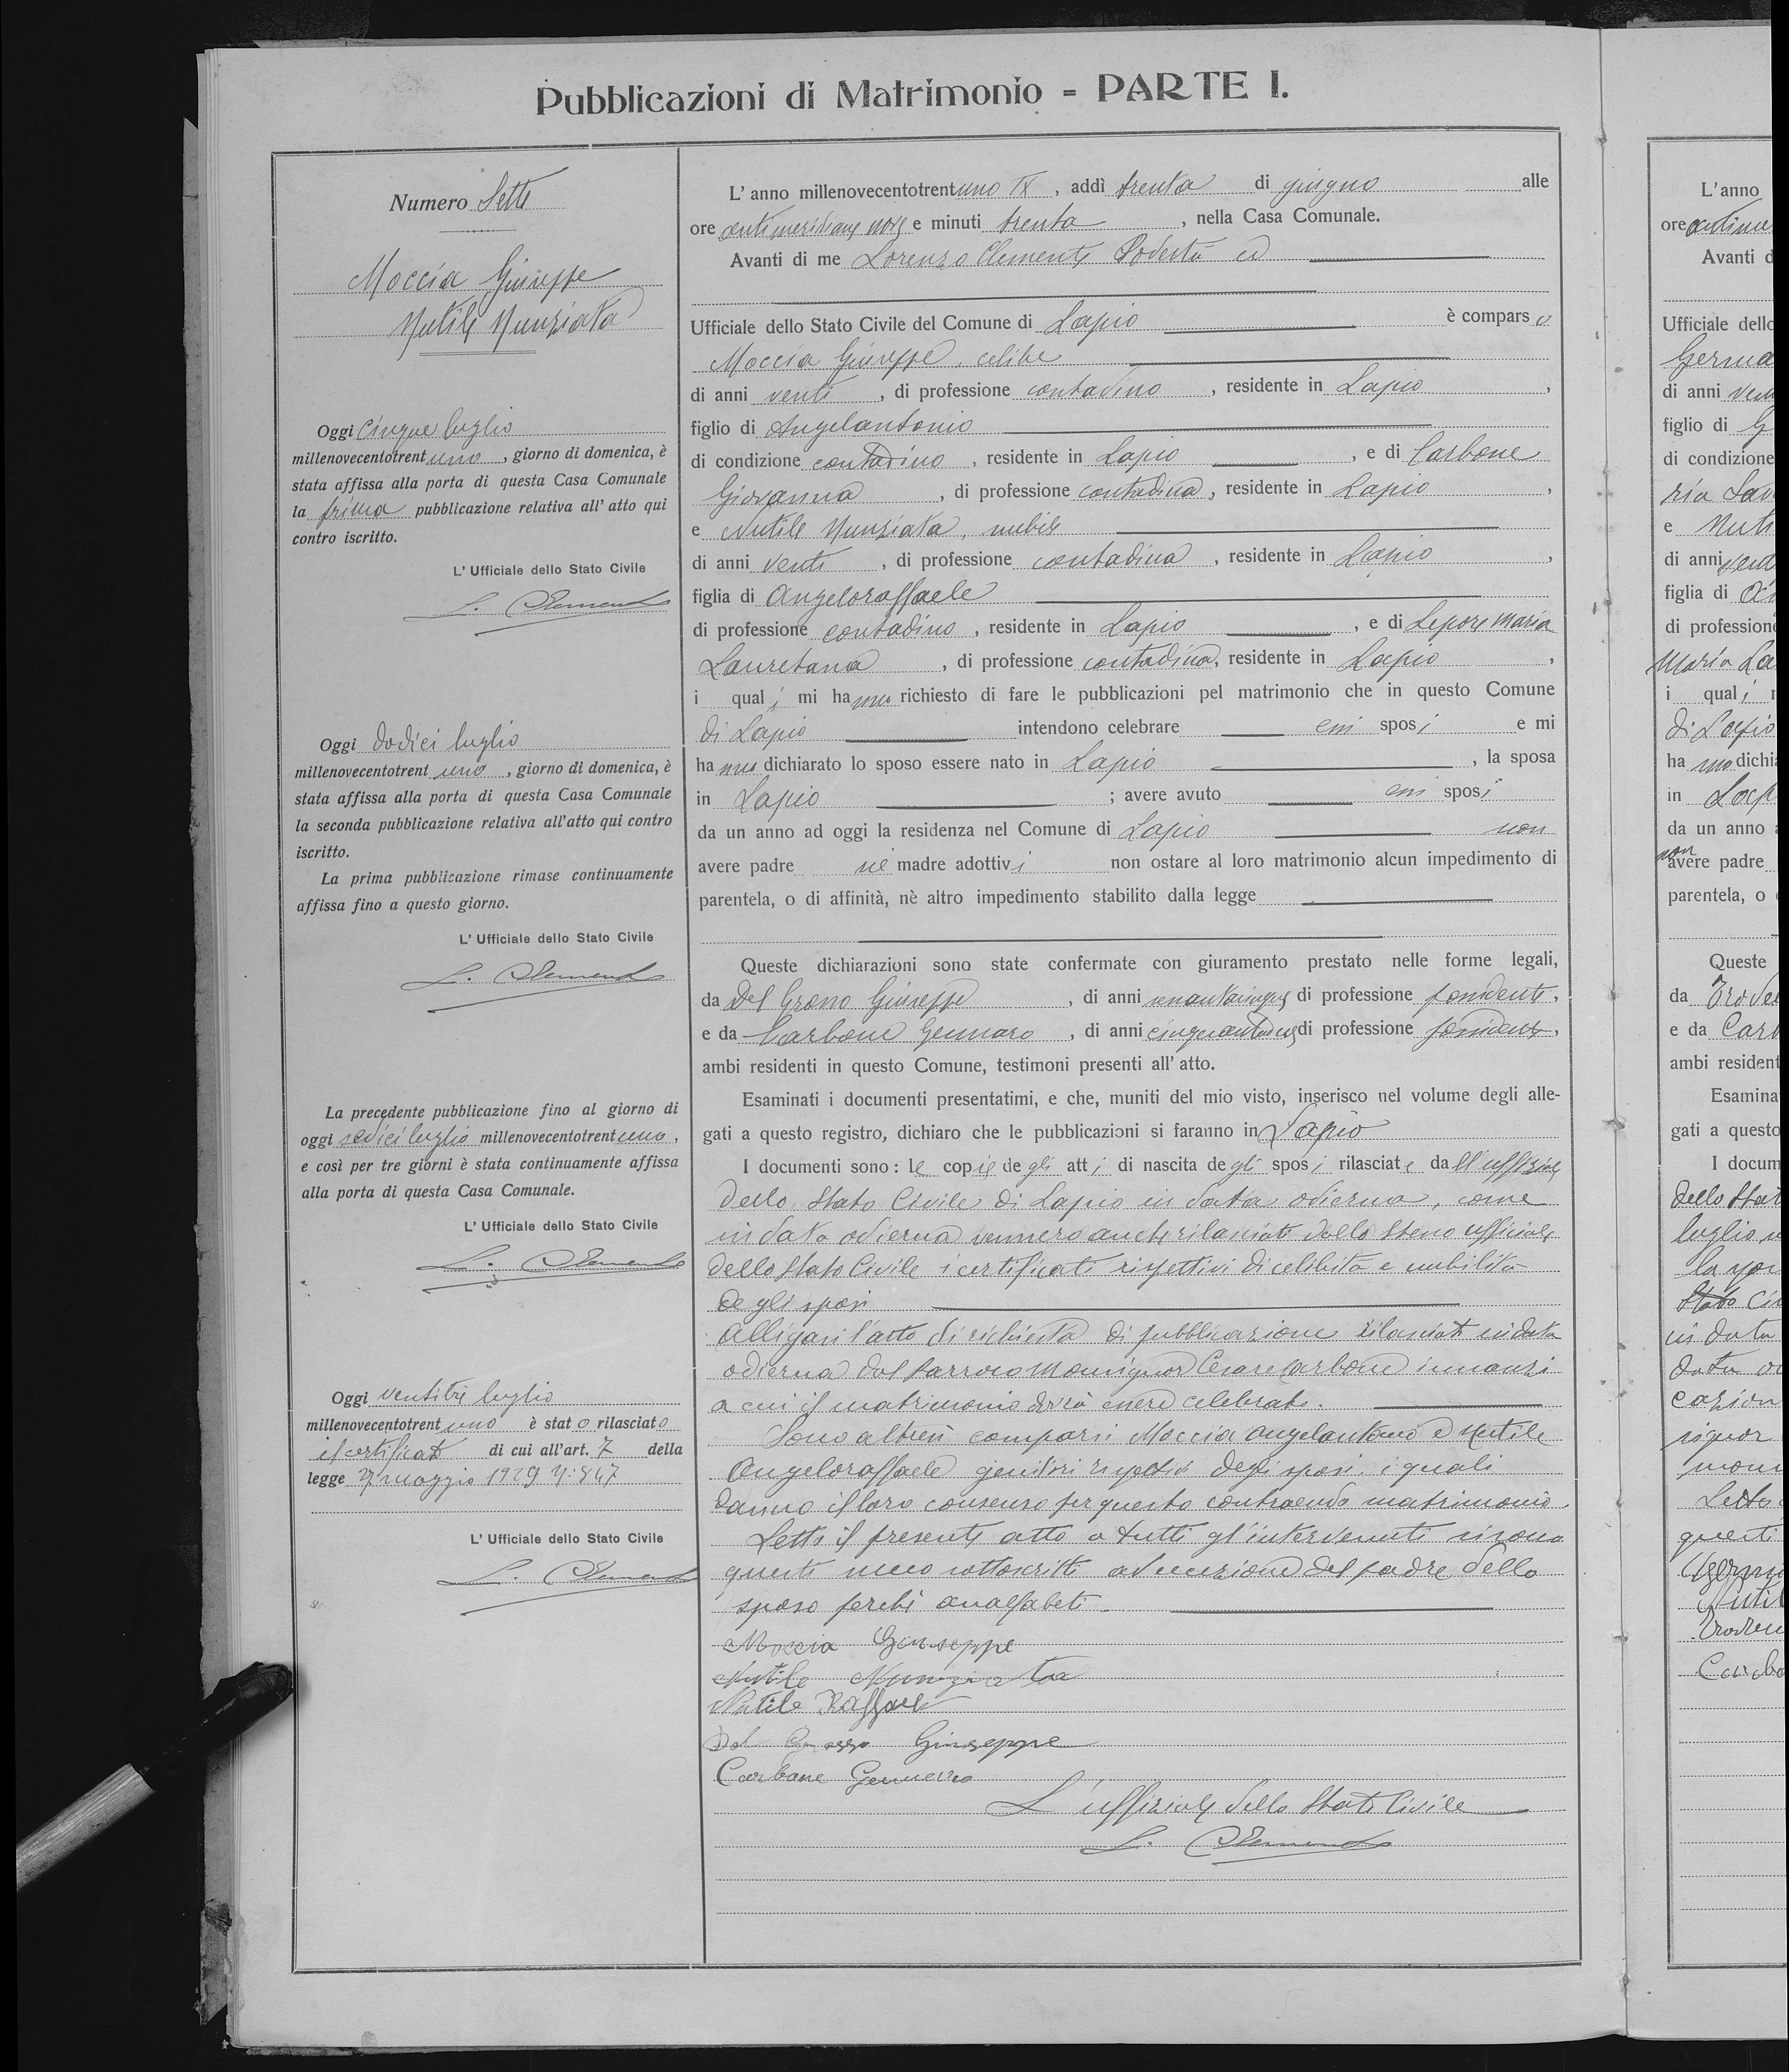 Pubblicazioni di Matrimonio - PARTE I.
Numero Sette
Moccia Giuseppe
Nutile Nunziata
Oggi cinque luglio
millenovecentotrentuno, giorno di domenica, è
stata affissa alla porta di questa Casa Comunale
la prima pubblicazione relativa all'atto qui
contro iscritto.
L'Ufficiale dello Stato Civile
L. Clemente
Oggi dodici luglio
millenovecentotrentuno, giorno di domenica, è
stata affissa alla porta di questa Casa Comunale
la seconda pubblicazione relativa all'atto qui contro
iscritto.
La prima pubblicazione rimase continuamente
affissa fino a questo giorno.
L'Ufficiale dello Stato Civile
L. Clemente
La precedente pubblicazione fino al giorno di
oggi sedici luglio millenovecentotrentuno,
e così per tre giorni è stata continuamente affissa
alla porta di questa Casa Comunale.
L'Ufficiale dello Stato Civile
L. Clemente
Oggi ventitrè luglio
millenovecentotrentuno è stato rilasciato
il certificato di cui all'art. 7 della
legge 27 maggio 1929 N: 847
L'Ufficiale dello Stato Civile
L. Clemente
L'anno millenovecentotrentuno IX, addì trenta di giugno alle
ore antimeridiane nove e minuti trenta, nella Casa Comunale.
Avanti di me Lorenzo Clemente Podestà ed
Ufficiale dello Stato Civile del Comune di Lapio è comparso
Moccia Giuseppe, celibe
di anni venti, di professione contadino, residente in Lapio,
figlio di Angelantonio
di condizione contadino, residente in Lapio, e di Carbone
Giovanna, di professione contadina, residente in Lapio,
e Nutile Nunziata, nubile
di anni venti, di professione contadina, residente in Lapio,
figlia di Angeloraffaele
di professione contadino, residente in Lapio, e di Lepore Maria
Lauretana, di professione contadina, residente in Lapio,
i quali mi hanno richiesto di fare le pubblicazioni pel matrimonio che in questo Comune
di Lapio intendono celebrare essi sposi e mi
hanno dichiarato lo sposo essere nato in Lapio, la sposa
in Lapio; avere avuto essi sposi
da un anno ad oggi la residenza nel Comune di Lapio non
avere padre nè madre adottivi non ostare al loro matrimonio alcun impedimento di
parentela, o di affinità, nè altro impedimento stabilito dalla legge
Queste dichiarazioni sono state confermate con giuramento prestato nelle forme legali,
da Del Grosso Giuseppe, di anni di professione possidente,
e da Carbone Gennaro, di anni di professione possidente,
ambi residenti in questo Comune, testimoni presenti all'atto.
Esaminati i documenti presentatimi, e che, muniti del mio visto, inserisco nel volume degli alle-
gati a questo registro, dichiaro che le pubblicazioni si faranno in Lapio
I documenti sono: le copie degli atti di nascita degli sposi rilasciate dall'uffiziale
dello Stato Civile di Lapio in data odierna, come
in data odierna vennero anche rilasciati dallo stesso ufficiale
dello Stato Civile i certificati rispettivi di celibità e nubilità
degli sposi
Alligasi l'atto di richiesta di pubblicazione rilasciato in data
odierna dal parroco Monsignor Cesare Carbone innanzi
a cui il matrimonio dovrà essere celebrato.
Sono altresì comparsi Moccia Angelantonio e Nutile
Angeloraffaele genitori rispettivi degli sposi i quali
danno il loro consenso per questo contraendo matrimonio.
Letto il presente atto a tutti gl'intervenuti si sono
questi meco sottoscritti ad eccezione del padre dello
sposo perchè analfabeti
Moccia Giuseppe
Nutile Nunziata
Nutile Raffaele
Del Grosso Giuseppe
Carbone Gennaro
L'uffiziale dello Stato Civile
L. Clemente
L'anno
ore
Avanti d
Ufficiale dello
Germa
di anni
figlio di G
di condizione
ria
e Nuti
di anni
figlia di
di professione
Maria La
i quali
di Lapio
hanno dichia
in Lap
da un anno a
non
avere padre
parentela, o
Queste
da
e da Carb
ambi resident
Esamina
gati a questo
I docum
dello Stat
luglio
Stato Civ
in data
data
cazion
signor
Letto
questi
Nutil
Carbo